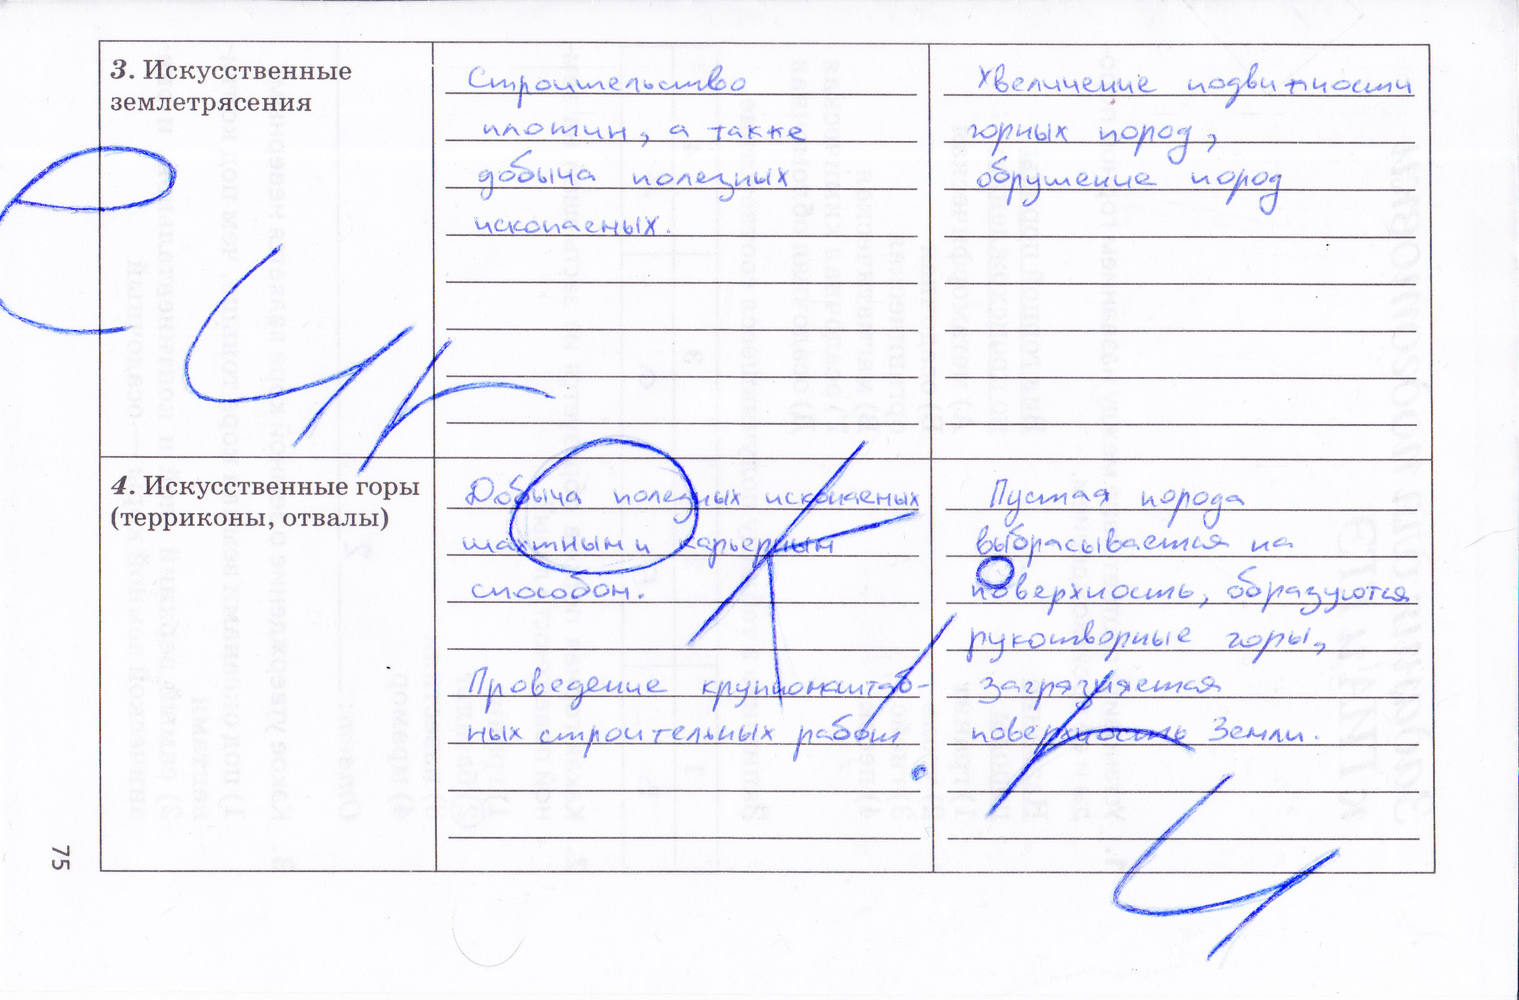 3. Искусственные
землетрясения
Строительство
плотин, а также
добыча полезных
ископаемых.
Увеличение подвижности
горных пород,
обрушение пород
4. Искусственные горы
(терриконы, отвалы)
Добыча полезных ископаемых
шахтным и карьерным
способом.
Проведение крупномасштаб-
ных строительных работ
Пустая порода
выбрасывается на
поверхность, образуются
рукотворные горы,
загрязняется
поверхность Земли.
75